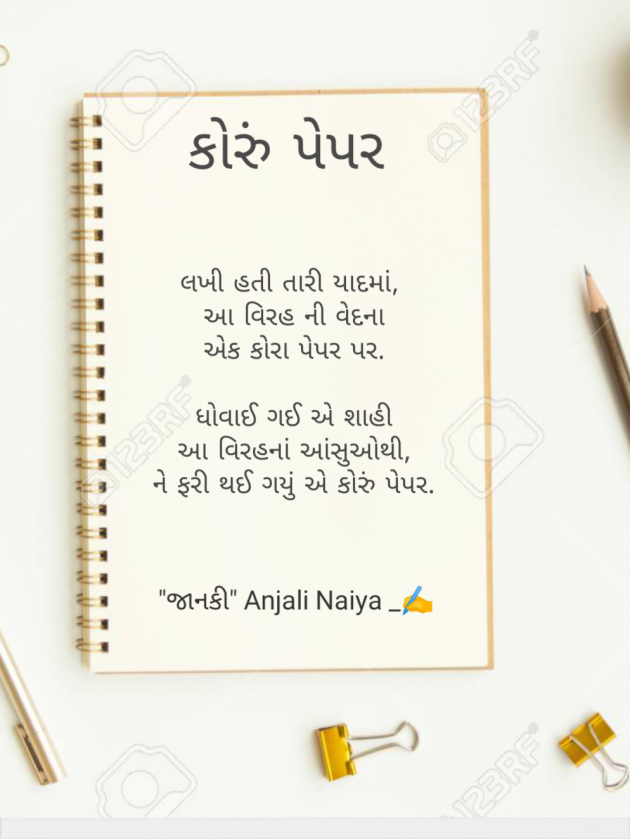 કોરું પેપર
લખી હતી તારી યાદમાં,
આ વિરહ ની વેદના
એક કોરા પેપર પર.
ધોવાઈ ગઈ એ શાહી
આ વિરહનાં આંસુઓથી,
ને ફરી થઈ ગયું એ કોરું પેપર.
"જાનકી" Anjali Naiya _✍️
123RF
123RF
123RF